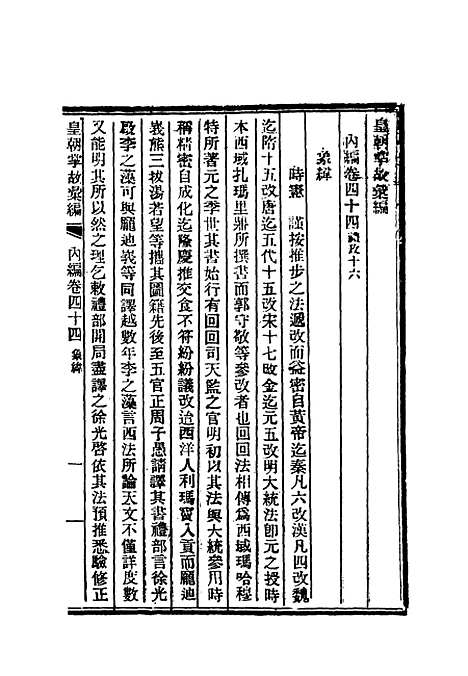 皇朝掌故彙編
內編卷四十四 象緯
時憲　謹按推步之法遞改而益密自黃帝迄秦凡六改漢凡四改魏
迄隋十五改唐迄五代十五改宋十七改金迄元五改明大統法卽元之授時
本西域扎瑪里鼎所撰書而郭守敬等參改者也回回法相傳爲西域瑪哈穆
特所著元之季世其書始行有回回司天監之官明初以其法與大統參用時
稱精密自成化迄隆慶推交食不符紛紛議改迨西洋人利瑪竇入貢而龐迪
峩熊三拔湯若望等攜其圖籍先後至五官正周子愚請譯其書禮部言徐光
啟李之藻可與龐迪峩等同譯越數年李之藻言西法所論天文不僅詳度數
又能明其所以然之理乞敕禮部開局盡譯之徐光啓依其法預推悉驗修正
皇朝掌故彙編　內編卷四十四　象緯　一